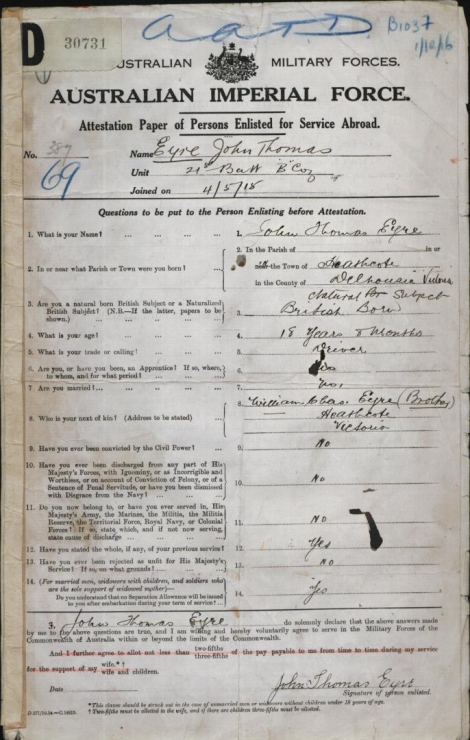 D 30731 A A T D B1037
1/12/16
AUSTRALIAN MILITARY FORCES.
AUSTRALIAN IMPERIAL FORCE.
Attestation Paper of Persons Enlisted for Service Abroad.
No. 387 Name Eyre John Thomas
69 Unit 21st Batt "B" Coy
Joined on 4/5/15
Questions to be put to the Person Enlisting before Attestation.
1. What is your Name? ... 1. John Thomas Eyre
2. In or near what Parish or Town were you born? ... 2. In the Parish of in or
near the Town of Heathcote
in the County of Dalhousie Victoria
3. Are you a natural born British Subject or a Naturalized
British Subject? (N.B.—If the latter, papers to be
shown.) ... 3. Natural Br Subject
British Born
4. What is your age? ... 4. 18 Years 8 Months
5. What is your trade or calling? ... 5. Driver
6. Are you, or have you been, an Apprentice? If so, where,
to whom, and for what period? ... 6.
7. Are you married? ... 7.
8. Who is your next of kin? (Address to be stated) ... 8. William Chas. Eyre (Brother)
Heathcote
Victoria
9. Have you ever been convicted by the Civil Power? ... 9. No
10. Have you ever been discharged from any part of His
Majesty's Forces, with Ignominy, or as Incorrigible and
Worthless, or on account of Conviction of Felony, or of a
Sentence of Penal Servitude, or have you been dismissed
with Disgrace from the Navy? ... 10. No
11. Do you now belong to, or have you ever served in, His
Majesty's Army, the Marines, the Militia, the Militia
Reserve, the Territorial Force, Royal Navy, or Colonial
Forces? If so, state which, and if not now serving,
state cause of discharge ... 11. No
12. Have you stated the whole, if any, of your previous service? 12. Yes
13. Have you ever been rejected as unfit for His Majesty's
Service? If so, on what grounds? ... 13. No
14. (For married men, widowers with children, and soldiers who
are the sole support of widowed mother)—
Do you understand that no Separation Allowance will be issued
to you after embarkation during your term of service? ... 14. Yes
I, John Thomas Eyre do solemnly declare that the above answers made
by me to the above questions are true, and I am willing and hereby voluntarily agree to serve in the Military Forces of the
Commonwealth of Australia within or beyond the limits of the Commonwealth.
And I further agree to allot not less than two-fifths three-fifths of the pay payable to me from time to time during my service
for the support of my wife.*† wife and children.
Date John Thomas Eyre
Signature of person enlisted.
*This clause should be struck out in the case of unmarried men or widowers without children under 18 years of age.
†Two-fifths must be allotted to the wife, and if there are children three-fifths must be allotted.